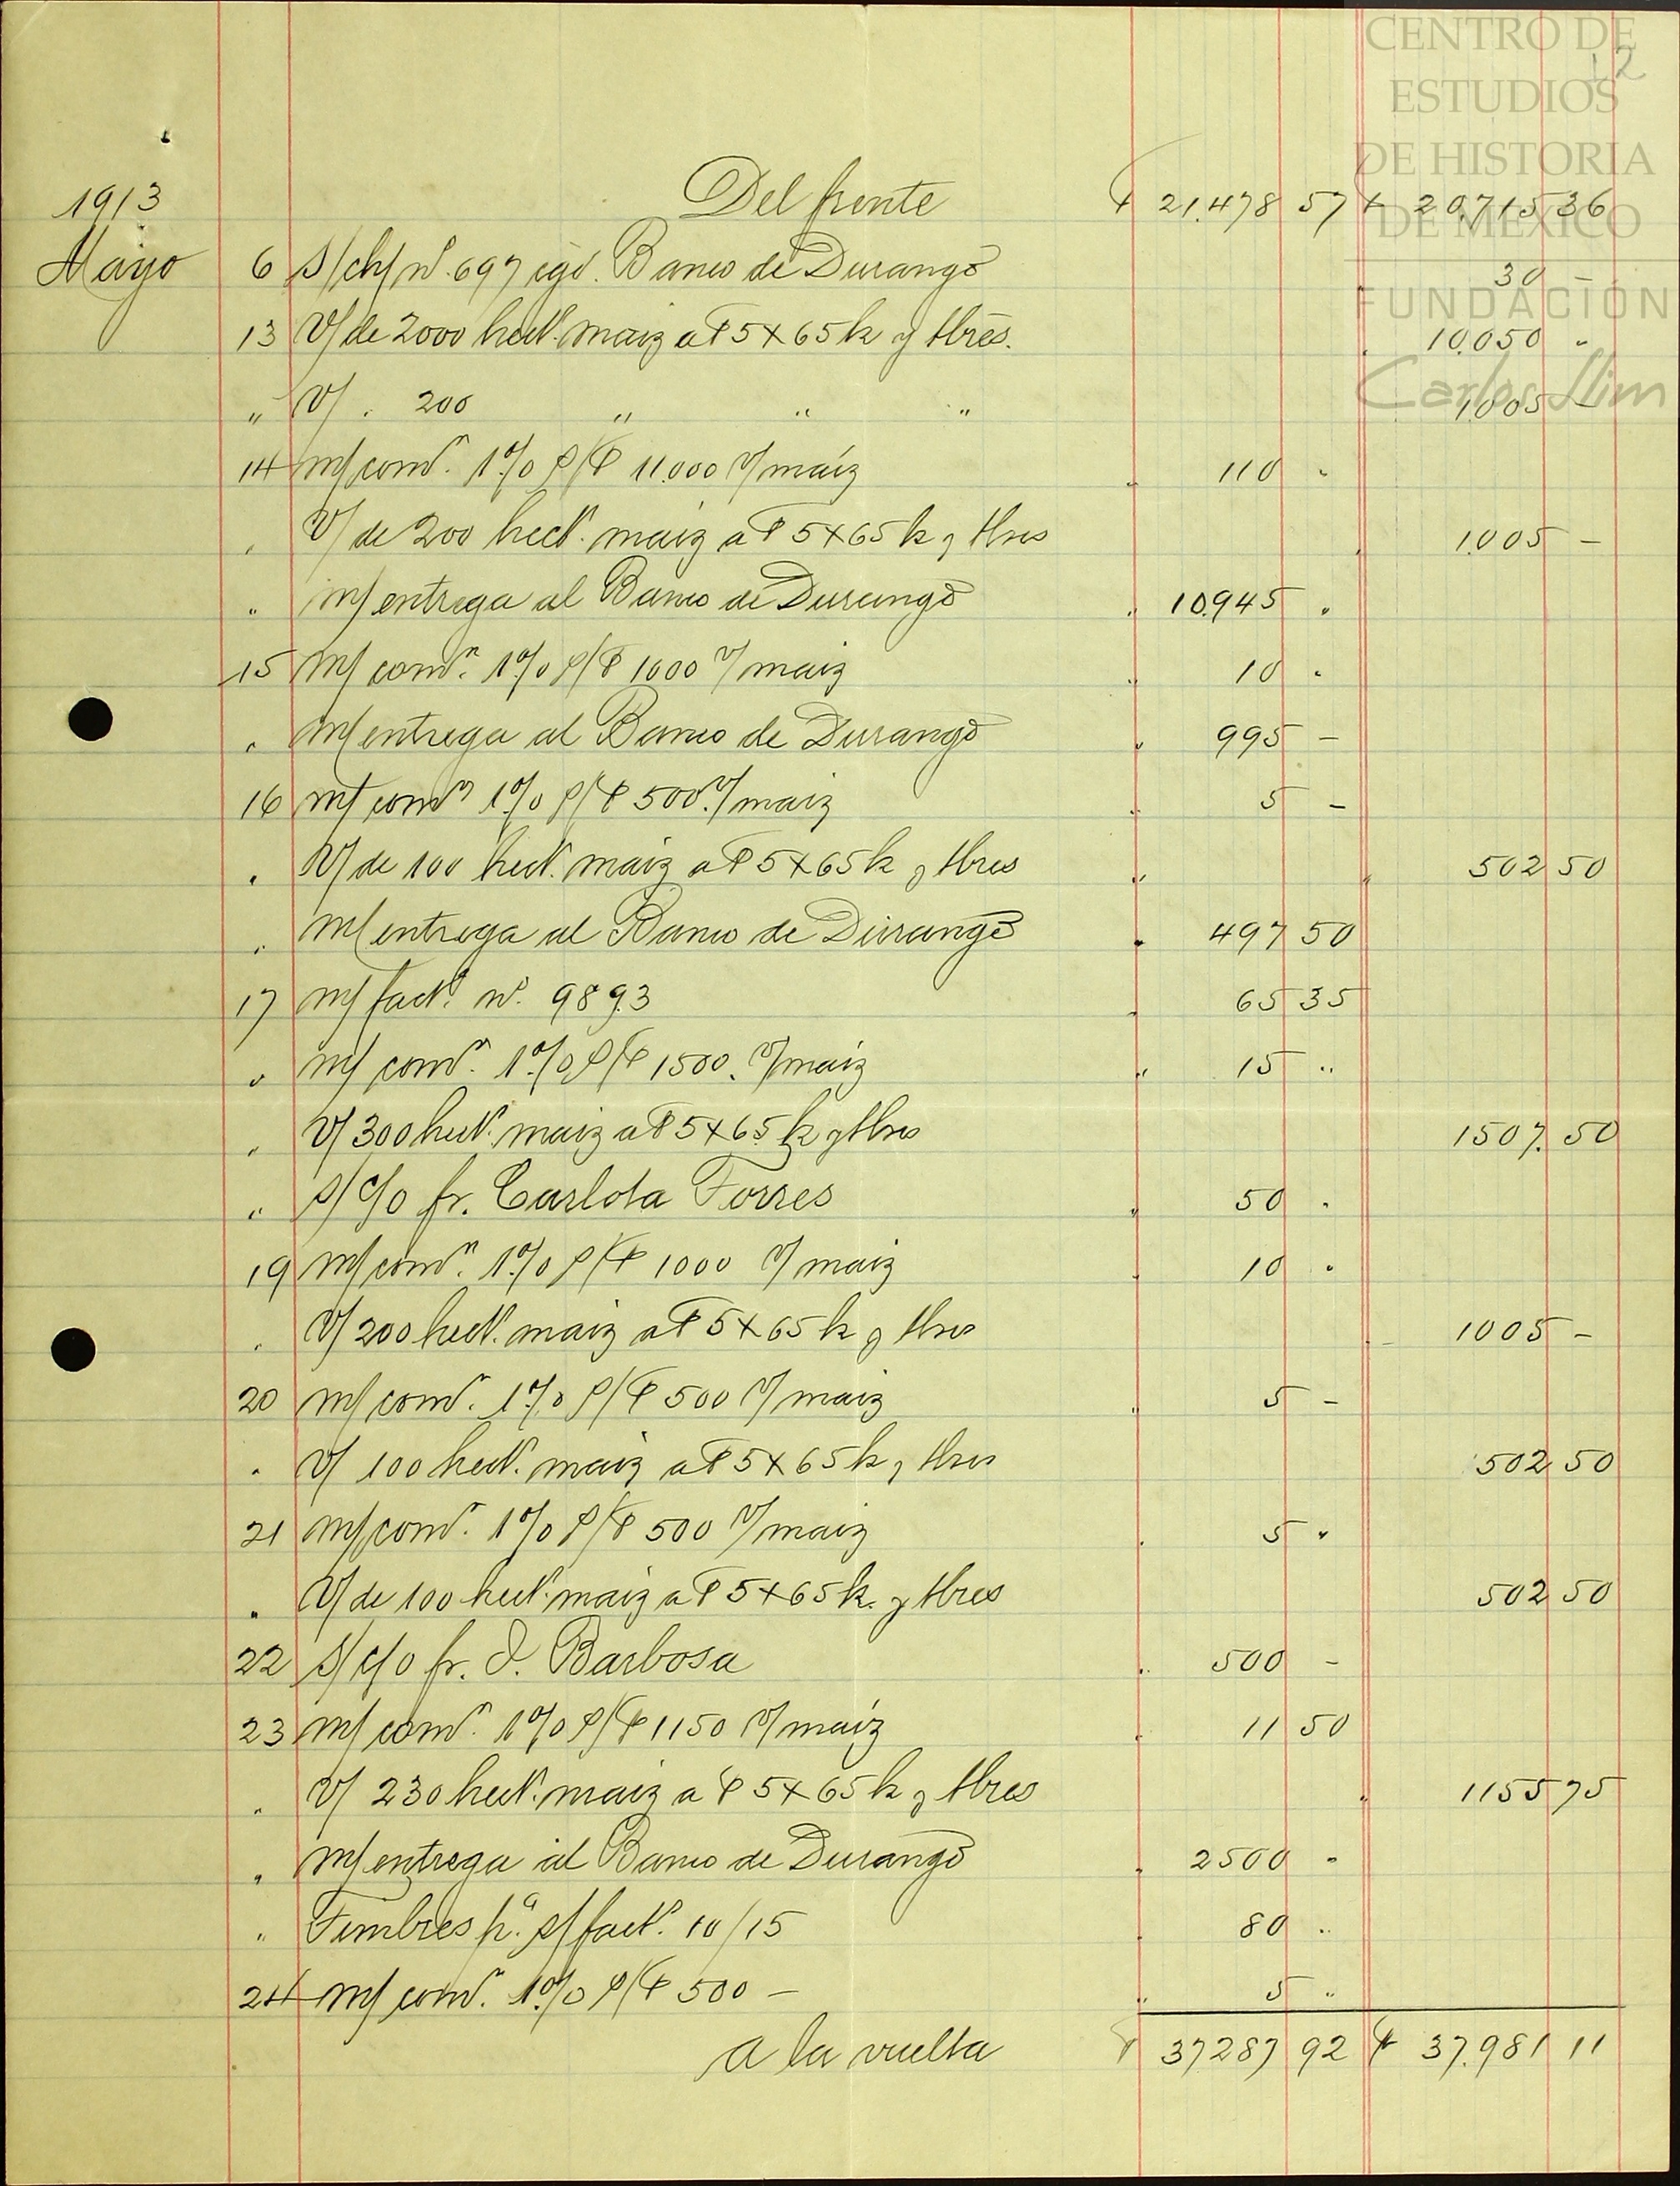 CENTRO DE
ESTUDIOS
DE HISTORIA
DE MÉXICO
FUNDACIÓN
Carlos Slim
12
1913 Del frente $ 21.478 57 $ 20.715 36
Mayo 6 S/ch/nº. 697 cgo. Banco de Durango 30 -
13 V/ de 2000 hectˢ. maiz a $ 5 x 65 k y tbres. 10.050 "
" V/ . 200 " " " 1005 -
14 m/ comⁿ. 1% s/$ 11.000 v/ maíz 110 "
" V/ de 200 hectˢ. maiz a $ 5 x 65 k y tbres 1.005 -
" m/ entrega al Banco de Durango 10.945 "
15 m/ comⁿ. 1% s/$ 1000 v/ maiz 10 "
" m/ entrega al Banco de Durango 995 -
16 m/ comⁿ 1% s/$ 500. v/ maiz 5 -
" V/ de 100 hectˢ. maiz a $ 5 x 65 k y tbres " 502 50
" m/ entrega al Banco de Durango 497 50
17 m/ factª. nº. 9893 65 35
" m/ comⁿ. 1% s/$ 1500. v/ maiz " 15 "
" V/ 300 hectˢ. maiz a $ 5 x 65 k y tbres 1507. 50
" s/ c/o fr. Carlota Torres " 50 "
19 m/ comⁿ. 1% s/$ 1000 v/ maiz 10 "
" V/ 200 hectˢ. maiz a $ 5 x 65 k y tbres 1005 -
20 m/ comⁿ. 1% s/$ 500 v/ maiz " 5 -
" V/ 100 hectˢ. maiz a $ 5 x 65 k y tbres 502 50
21 m/ comⁿ. 1% s/$ 500 v/ maiz 5 "
" V/ de 100 hectˢ. maiz a $ 5 x 65 k. y tbres 502 50
22 s/ c/o fr. J. Barbosa " 500 -
23 m/ comⁿ. 1% s/$ 1150 v/ maíz 11 50
" V/ 230 hectˢ. maiz a $ 5 x 65 k y tbres " 1155 75
" m/ entrega al Banco de Durango 2500 "
" Timbres pª. s/ factˢ. 10/15 80 "
24 m/ comⁿ. 1% s/$ 500 - " 5 "
a la vuelta $ 37287 92 $ 37.981 11